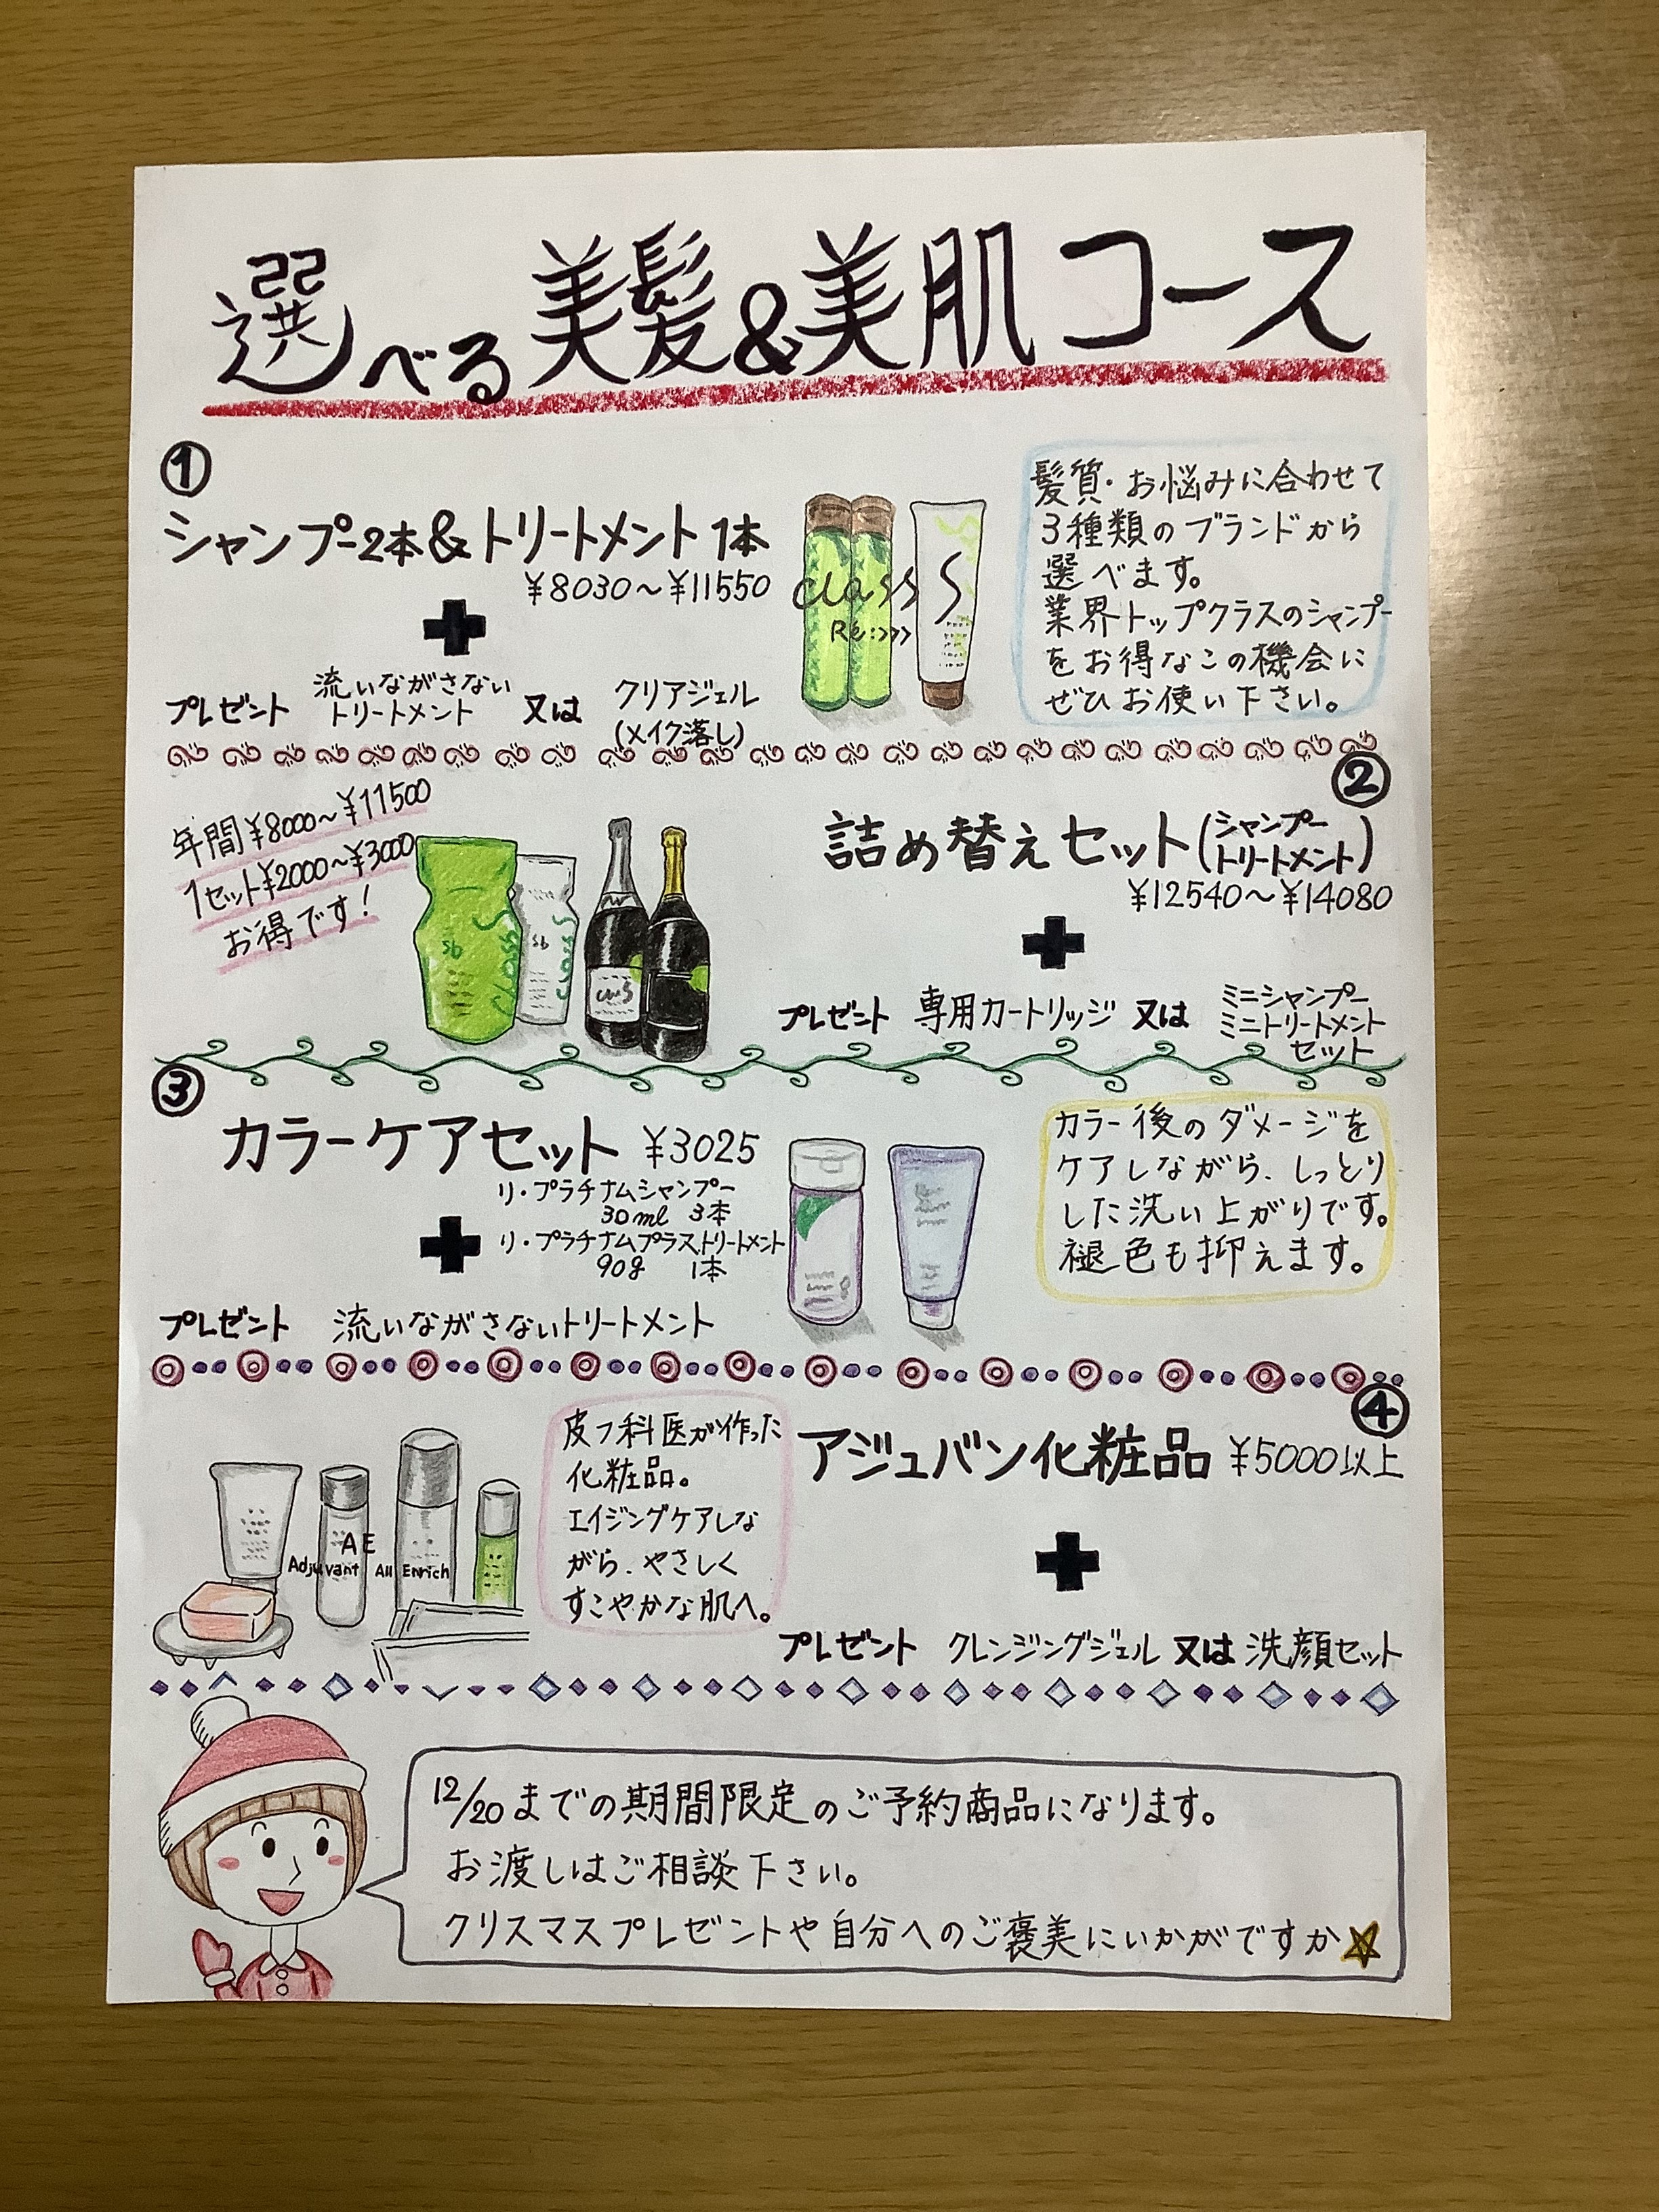 選べる美髪&美肌コース
①
シャンプー2本&トリートメント1本
¥8030～¥11550
プレゼント 流いながさないトリートメント 又は クリアジェル(メイク落し)
class S
Re:>>>
髪質・お悩みに合わせて
3種類のブランドから
選べます。
業界トップクラスのシャンプー
をお得なこの機会に
ぜひお使い下さい。
②
年間¥8000～¥11500
1セット¥2000～¥3000
お得です!
Sb
Class S
Sb
Class
詰め替えセット(シャンプートリートメント)
¥12540～¥14080
プレゼント 専用カートリッジ 又は ミニシャンプー
ミニトリートメント
セット
③
カラーケアセット ¥3025
リ・プラチナムシャンプー
30ml 3本
リ・プラチナムプラストリートメント
90g 1本
プレゼント 流いながさないトリートメント
カラー後のダメージを
ケアしながら、しっとり
した洗い上がりです。
褪色も抑えます。
④
アジュバン化粧品 ¥5000以上
皮フ科医が作った
化粧品。
エイジングケアしな
がら、やさしく
すこやかな肌へ。
AE
Adjuvant All Enrich
プレゼント クレンジングジェル 又は 洗顔セット
12/20までの期間限定のご予約商品になります。
お渡しはご相談下さい。
クリスマスプレゼントや自分へのご褒美にいかがですか